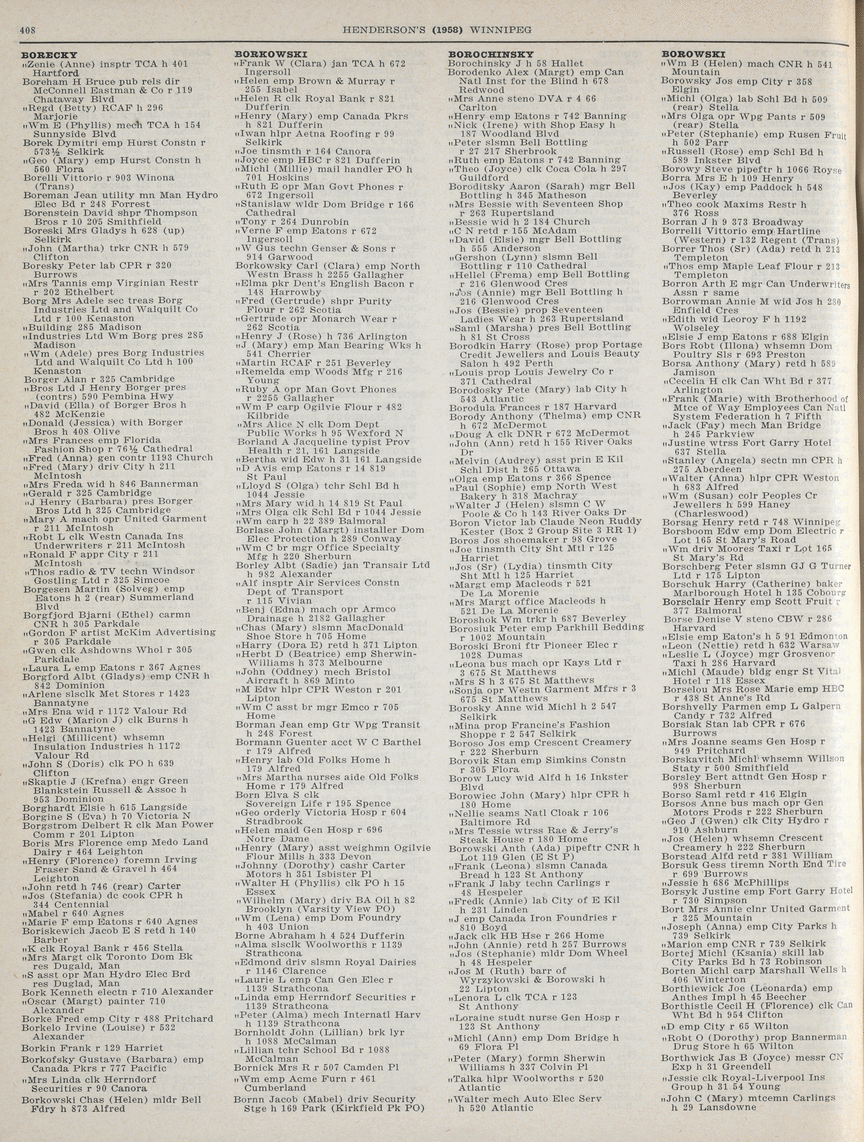 408
HENDERSON'S (1958) WINNIPEG
BORECKY
"Zenie (Anne) insptr TCA h 401
Hartford
Boreham H Bruce pub rels dir
McConnell Eastman & Co r 119
Chataway Blvd
"Regd (Betty) RCAF h 296
Marjorie
"Wm E (Phyllis) mech TCA h 154
Sunnyside Blvd
Borek Dymitri emp Hurst Constn r
573½ Selkirk
"Geo (Mary) emp Hurst Constn h
560 Flora
Borelli Vittorio r 903 Winona
(Trans)
Boreman Jean utility mn Man Hydro
Elec Bd r 248 Forrest
Borenstein David shpr Thompson
Bros r 10 205 Smithfield
Boreski Mrs Gladys h 628 (up)
Selkirk
"John (Martha) trkr CNR h 579
Clifton
Boresky Peter lab CPR r 320
Burrows
"Mrs Tannis emp Virginian Restr
r 202 Ethelbert
Borg Mrs Adele sec treas Borg
Industries Ltd and Walquilt Co
Ltd r 100 Kenaston
"Building 285 Madison
"Industries Ltd Wm Borg pres 285
Madison
"Wm (Adele) pres Borg Industries
Ltd and Walquilt Co Ltd h 100
Kenaston
Borger Alan r 325 Cambridge
"Bros Ltd J Henry Borger pres
(contrs) 590 Pembina Hwy
"David (Ella) of Borger Bros h
482 McKenzie
"Donald (Jessica) with Borger
Bros h 408 Olive
"Mrs Frances emp Florida
Fashion Shop r 76½ Cathedral
"Fred (Anna) gen contr 1193 Church
"Fred (Mary) driv City h 211
McIntosh
"Mrs Freda wid h 846 Bannerman
"Gerald r 325 Cambridge
"J Henry (Barbara) pres Borger
Bros Ltd h 325 Cambridge
"Mary A mach opr United Garment
r 211 McIntosh
"Robt L clk Westn Canada Ins
Underwriters r 211 McIntosh
"Ronald F appr City r 211
McIntosh
"Thos radio & TV techn Windsor
Gostling Ltd r 325 Simcoe
Borgesen Martin (Solveg) emp
Eatons h 2 (rear) Summerland
Blvd
Borgfjord Bjarni (Ethel) carmn
CNR h 305 Parkdale
"Gordon F artist McKim Advertising
r 305 Parkdale
"Gwen clk Ashdowns Whol r 305
Parkdale
"Laura L emp Eatons r 367 Agnes
Borgford Albt (Gladys) emp CNR h
842 Dominion
"Arlene slsclk Met Stores r 1423
Bannatyne
"Mrs Ena wid r 1172 Valour Rd
"G Edw (Marion J) clk Burns h
1423 Bannatyne
"Helgi (Millicent) whsemn
Insulation Industries h 1172
Valour Rd
"John S (Doris) clk PO h 639
Clifton
"Skaptie J (Krefna) engr Green
Blankstein Russell & Assoc h
953 Dominion
Borghardt Elsie h 615 Langside
Borgine S (Eva) h 70 Victoria N
Borgstrom Delbert R clk Man Power
Comm r 201 Lipton
Boris Mrs Florence emp Medo Land
Dairy r 464 Leighton
"Henry (Florence) foremn Irving
Fraser Sand & Gravel h 464
Leighton
"John retd h 746 (rear) Carter
"Jos (Stefania) dc cook CPR h
344 Centennial
"Mabel r 640 Agnes
"Marie F emp Eatons r 640 Agnes
Boriskewich Jacob E S retd h 140
Barber
"K clk Royal Bank r 456 Stella
"Mrs Margt clk Toronto Dom Bk
res Dugald, Man
"S asst opr Man Hydro Elec Brd
res Duglad, Man
Bork Kenneth electn r 710 Alexander
"Oscar (Margt) painter 710
Alexander
Borke Fred emp City r 488 Pritchard
Borkelo Irvine (Louise) r 532
Alexander
Borkin Frank r 129 Harriet
Borkofsky Gustave (Barbara) emp
Canada Pkrs r 777 Pacific
"Mrs Linda clk Herrndorf
Securities r 90 Canora
Borkowski Chas (Helen) mldr Bell
Fdry h 873 Alfred
BORKOWSKI
"Frank W (Clara) jan TCA h 672
Ingersoll
"Helen emp Brown & Murray r
255 Isabel
"Helen R clk Royal Bank r 821
Dufferin
"Henry (Mary) emp Canada Pkrs
h 821 Dufferin
"Iwan hlpr Aetna Roofing r 99
Selkirk
"Joe tinsmth r 164 Canora
"Joyce emp HBC r 821 Dufferin
"Michl (Millie) mail handler PO h
701 Hoskins
"Ruth E opr Man Govt Phones r
672 Ingersoll
"Stanislaw wldr Dom Bridge r 166
Cathedral
"Tony r 264 Dunrobin
"Verne F emp Eatons r 672
Ingersoll
"W Gus techn Genser & Sons r
914 Garwood
Borkowsky Carl (Clara) emp North
Westn Brass h 2255 Gallagher
"Elma pkr Dent's English Bacon r
148 Harrowby
"Fred (Gertrude) shpr Purity
Flour r 262 Scotia
"Gertrude opr Monarch Wear r
262 Scotia
"Henry J (Rose) h 736 Arlington
"J (Mary) emp Man Bearing Wks h
541 Cherrier
"Martin RCAF r 251 Beverley
"Remelda emp Woods Mfg r 216
Young
"Ruby A opr Man Govt Phones
r 2255 Gallagher
"Wm P carp Ogilvie Flour r 482
Kilbride
"Mrs Alice N clk Dom Dept
Public Works h 95 Wexford N
Borland A Jacqueline typist Prov
Health r 21, 161 Langside
"Bertha wid Edw h 31 161 Langside
"D Avis emp Eatons r 14 819
St Paul
"Lloyd S (Olga) tchr Schl Bd h
1044 Jessie
"Mrs Mary wid h 14 819 St Paul
"Mrs Olga clk Schl Bd r 1044 Jessie
"Wm carp h 22 389 Balmoral
Borlase John (Margt) installer Dom
Elec Protection h 289 Conway
"Wm C br mgr Office Specialty
Mfg h 220 Sherburn
Borley Albt (Sadie) jan Transair Ltd
h 982 Alexander
"Alf insptr Air Services Constn
Dept of Transport
r 115 Vivian
"Benj (Edna) mach opr Armco
Drainage h 2182 Gallagher
"Chas (Mary) slsmn MacDonald
Shoe Store h 705 Home
"Harry (Dora E) retd h 371 Lipton
"Herbt D (Beatrice) emp Sherwin-
Williams h 373 Melbourne
"John (Oddney) mech Bristol
Aircraft h 869 Minto
"M Edw hlpr CPR Weston r 201
Lipton
"Wm C asst br mgr Emco r 705
Home
Borman Jean emp Gtr Wpg Transit
h 248 Forest
Bormann Guenter acct W C Barthel
r 179 Alfred
"Henry lab Old Folks Home h
179 Alfred
"Mrs Martha nurses aide Old Folks
Home r 179 Alfred
Born Elva S clk
Sovereign Life r 195 Spence
"Geo orderly Victoria Hosp r 604
Stradbrook
"Helen maid Gen Hosp r 696
Notre Dame
"Henry (Mary) asst weighmn Ogilvie
Flour Mills h 333 Devon
"Johnny (Dorothy) cashr Carter
Motors h 351 Isbister Pl
"Walter H (Phyllis) clk PO h 15
Essex
"Wilhelm (Mary) driv BA Oil h 82
Brooklyn (Varsity View PO)
"Wm (Lena) emp Dom Foundry
h 403 Union
Borne Abraham h 4 524 Dufferin
"Alma slsclk Woolworths r 1139
Strathcona
"Edmond driv slsmn Royal Dairies
r 1146 Clarence
"Laurie L emp Can Gen Elec r
1139 Strathcona
"Linda emp Herrndorf Securities r
1139 Strathcona
"Peter (Alma) mech Internatl Harv
h 1139 Strathcona
Bornholdt John (Lillian) brk lyr
h 1088 McCalman
"Lillian tchr School Bd r 1088
McCalman
Bornick Mrs R r 507 Camden Pl
"Wm emp Acme Furn r 461
Cumberland
Bornn Jacob (Mabel) driv Security
Stge h 169 Park (Kirkfield Pk PO)
BOROCHINSKY
Borochinsky J h 58 Hallet
Borodenko Alex (Margt) emp Can
Natl Inst for the Blind h 678
Redwood
"Mrs Anne steno DVA r 4 66
Carlton
"Henry emp Eatons r 742 Banning
"Nick (Irene) with Shop Easy h
187 Woodland Blvd
"Peter slsmn Bell Bottling
r 27 217 Sherbrook
"Ruth emp Eatons r 742 Banning
"Theo (Joyce) clk Coca Cola h 297
Guildford
Boroditsky Aaron (Sarah) mgr Bell
Bottling h 345 Matheson
"Mrs Bessie with Seventeen Shop
r 263 Rupertsland
"Bessie wid h 2 184 Church
"C N retd r 155 McAdam
"David (Elsie) mgr Bell Bottling
h 555 Anderson
"Gershon (Lynn) slsmn Bell
Bottling r 110 Cathedral
"Hellel (Frema) emp Bell Bottling
r 216 Glenwood Cres
"Jos (Annie) mgr Bell Bottling h
216 Glenwood Cres
"Jos (Bessie) prop Seventeen
Ladies Wear h 263 Rupertsland
"Saml (Marsha) pres Bell Bottling
h 81 St Cross
Borodkin Harry (Rose) prop Portage
Credit Jewellers and Louis Beauty
Salon h 492 Perth
"Louis prop Louis Jewelry Co r
371 Cathedral
Borodosky Pete (Mary) lab City h
543 Atlantic
Borodula Frances r 187 Harvard
Borody Anthony (Thelma) emp CNR
h 672 McDermot
"Doug A clk DNR r 672 McDermot
"John (Ann) retd h 155 River Oaks
Dr
"Melvin (Audrey) asst prin E Kil
Schl Dist h 265 Ottawa
"Olga emp Eatons r 366 Spence
"Paul (Sophie) emp North West
Bakery h 318 Machray
"Walter J (Helen) slsmn C W
Poole & Co h 143 River Oaks Dr
Boron Victor lab Claude Neon Ruddy
Kester (Box 2 Group Site 3 RR 1)
Boros Jos shoemaker r 98 Grove
"Joe tinsmth City Sht Mtl r 125
Harriet
"Jos (Sr) (Lydia) tinsmth City
Sht Mtl h 125 Harriet
"Margt emp Macleods r 521
De La Morenie
"Mrs Margt office Macleods h
521 De La Morenie
Boroshok Wm trkr h 687 Beverley
Borosiuk Peter emp Parkhill Bedding
r 1002 Mountain
Boroski Broni ftr Pioneer Elec r
1028 Dumas
"Leona bus mach opr Kays Ltd r
3 675 St Matthews
"Mrs S h 3 675 St Matthews
"Sonja opr Westn Garment Mfrs r 3
675 St Matthews
Borosky Anne wid Michl h 2 547
Selkirk
"Mina prop Francine's Fashion
Shoppe r 2 547 Selkirk
Boroso Jos emp Crescent Creamery
r 222 Sherburn
Borovik Stan emp Simkins Constn
r 305 Flora
Borow Lucy wid Alfd h 16 Inkster
Blvd
Borowiec John (Mary) hlpr CPR h
180 Home
"Nellie seams Natl Cloak r 106
Baltimore Rd
"Mrs Tessie wtrss Rae & Jerry's
Steak House r 180 Home
Borowski Anth (Ada) pipeftr CNR h
Lot 119 Glen (E St P)
"Frank (Leona) slsmn Canada
Bread h 123 St Anthony
"Frank J laby techn Carlings r
48 Hespeler
"Fredk (Annie) lab City of E Kil
h 231 Linden
"J emp Canada Iron Foundries r
810 Boyd
"Jack clk HB Hse r 266 Home
"John (Annie) retd h 257 Burrows
"Jos (Stephanie) mldr Dom Wheel
h 48 Hespeler
"Jos M (Ruth) barr of
Wyrzykowski & Borowski h
22 Lipton
"Lenora L clk TCA r 123
St Anthony
"Loraine studt nurse Gen Hosp r
123 St Anthony
"Michl (Ann) emp Dom Bridge h
69 Flora Pl
"Peter (Mary) formn Sherwin
Williams h 337 Colvin Pl
"Talka hlpr Woolworths r 520
Atlantic
"Walter mech Auto Elec Serv
h 520 Atlantic
BOROWSKI
"Wm B (Helen) mach CNR h 541
Mountain
Borowsky Jos emp City r 358
Elgin
"Michl (Olga) lab Schl Bd h 509
(rear) Stella
"Mrs Olga opr Wpg Pants r 509
(rear) Stella
"Peter (Stephanie) emp Rusen Fruit
h 502 Parr
"Russell (Rose) emp Schl Bd h
589 Inkster Blvd
Borowy Steve pipeftr h 1066 Royse
Borra Mrs E h 109 Henry
"Jos (Kay) emp Paddock h 548
Beverley
"Theo cook Maxims Restr h
376 Ross
Borran J h 9 373 Broadway
Borrelli Vittorio emp Hartline
(Western) r 132 Regent (Trans)
Borrer Thos (Sr) (Ada) retd h 213
Templeton
"Thos emp Maple Leaf Flour r 213
Templeton
Borron Arth E mgr Can Underwriters
Assn r same
Borrowman Annie M wid Jos h 280
Enfield Cres
"Edith wid Leoroy F h 1192
Wolseley
"Elsie J emp Eatons r 688 Elgin
Bors Robt (Illona) whsemn Dom
Poultry Sls r 693 Preston
Borsa Anthony (Mary) retd h 589
Jamison
"Cecelia H clk Can Wht Bd r 377
Arlington
"Frank (Marie) with Brotherhood of
Mtce of Way Employees Can Natl
System Federation h 7 Fifth
"Jack (Fay) mech Man Bridge
h 245 Parkview
"Justine wtrss Fort Garry Hotel
637 Stella
"Stanley (Angela) sectn mn CPR h
275 Aberdeen
"Walter (Anna) hlpr CPR Weston
h 683 Alfred
"Wm (Susan) colr Peoples Cr
Jewellers h 599 Haney
(Charleswood)
Borsag Henry retd r 748 Winnipeg
Borsboom Edw emp Dom Electric r
Lot 165 St Mary's Road
"Wm driv Moores Taxi r Lot 165
St Mary's Rd
Borschberg Peter slsmn GJ G Turner
Ltd r 175 Lipton
Borschuk Harry (Catherine) baker
Marlborough Hotel h 135 Cobourg
Borsclair Henry emp Scott Fruit r
377 Balmoral
Borse Denise V steno CBW r 286
Harvard
"Elsie emp Eaton's h 5 91 Edmonton
"Leon (Nettie) retd h 632 Warsaw
"Leslie L (Joyce) mgr Grosvenor
Taxi h 286 Harvard
"Michl (Maude) bldg engr St Vital
Hotel r 118 Essex
Borselou Mrs Rose Marie emp HBC
r 438 St Anne's Rd
Borshvelly Parmen emp L Galpern
Candy r 732 Alfred
Borsiak Stan lab CPR r 676
Burrows
"Mrs Joanne seams Gen Hosp r
949 Pritchard
Borskavitch Michl whsemn Willson
Staty r 500 Smithfield
Borsley Bert attndt Gen Hosp r
998 Sherburn
Borso Saml retd r 416 Elgin
Borsos Anne bus mach opr Gen
Motors Prods r 222 Sherburn
"Geo J (Gwen) clk City Hydro r
910 Ashburn
"Jos (Helen) whsemn Crescent
Creamery r 222 Sherburn
Borstead Alfd retd r 381 William
Borsuk Gess tiremn North End Tire
r 699 Burrows
"Jessie h 686 McPhillips
Borsyk Justine emp Fort Garry Hotel
r 730 Simpson
Bort Mrs Annie clnr United Garment
r 325 Mountain
"Joseph (Anna) emp City Parks h
739 Selkirk
"Marion emp CNR r 739 Selkirk
Bortej Michl (Ksania) skill lab
City Parks Bd h 73 Robinson
Borten Michl carp Marshall Wells h
406 Winterton
Borthiewick Joe (Leonarda) emp
Anthes Impl h 45 Beecher
Borthistle Cecil H (Florence) clk Can
Wht Bd h 954 Clifton
"D emp City r 65 Wilton
"Robt O (Dorothy) prop Bannerman
Drug Store h 65 Wilton
Borthwick Jas B (Joyce) messr CN
Exp h 31 Greendell
"Jessie clk Royal-Liverpool Ins
Group h 31 54 Young
"John C (Mary) mtcemn Carlings
h 29 Lansdowne